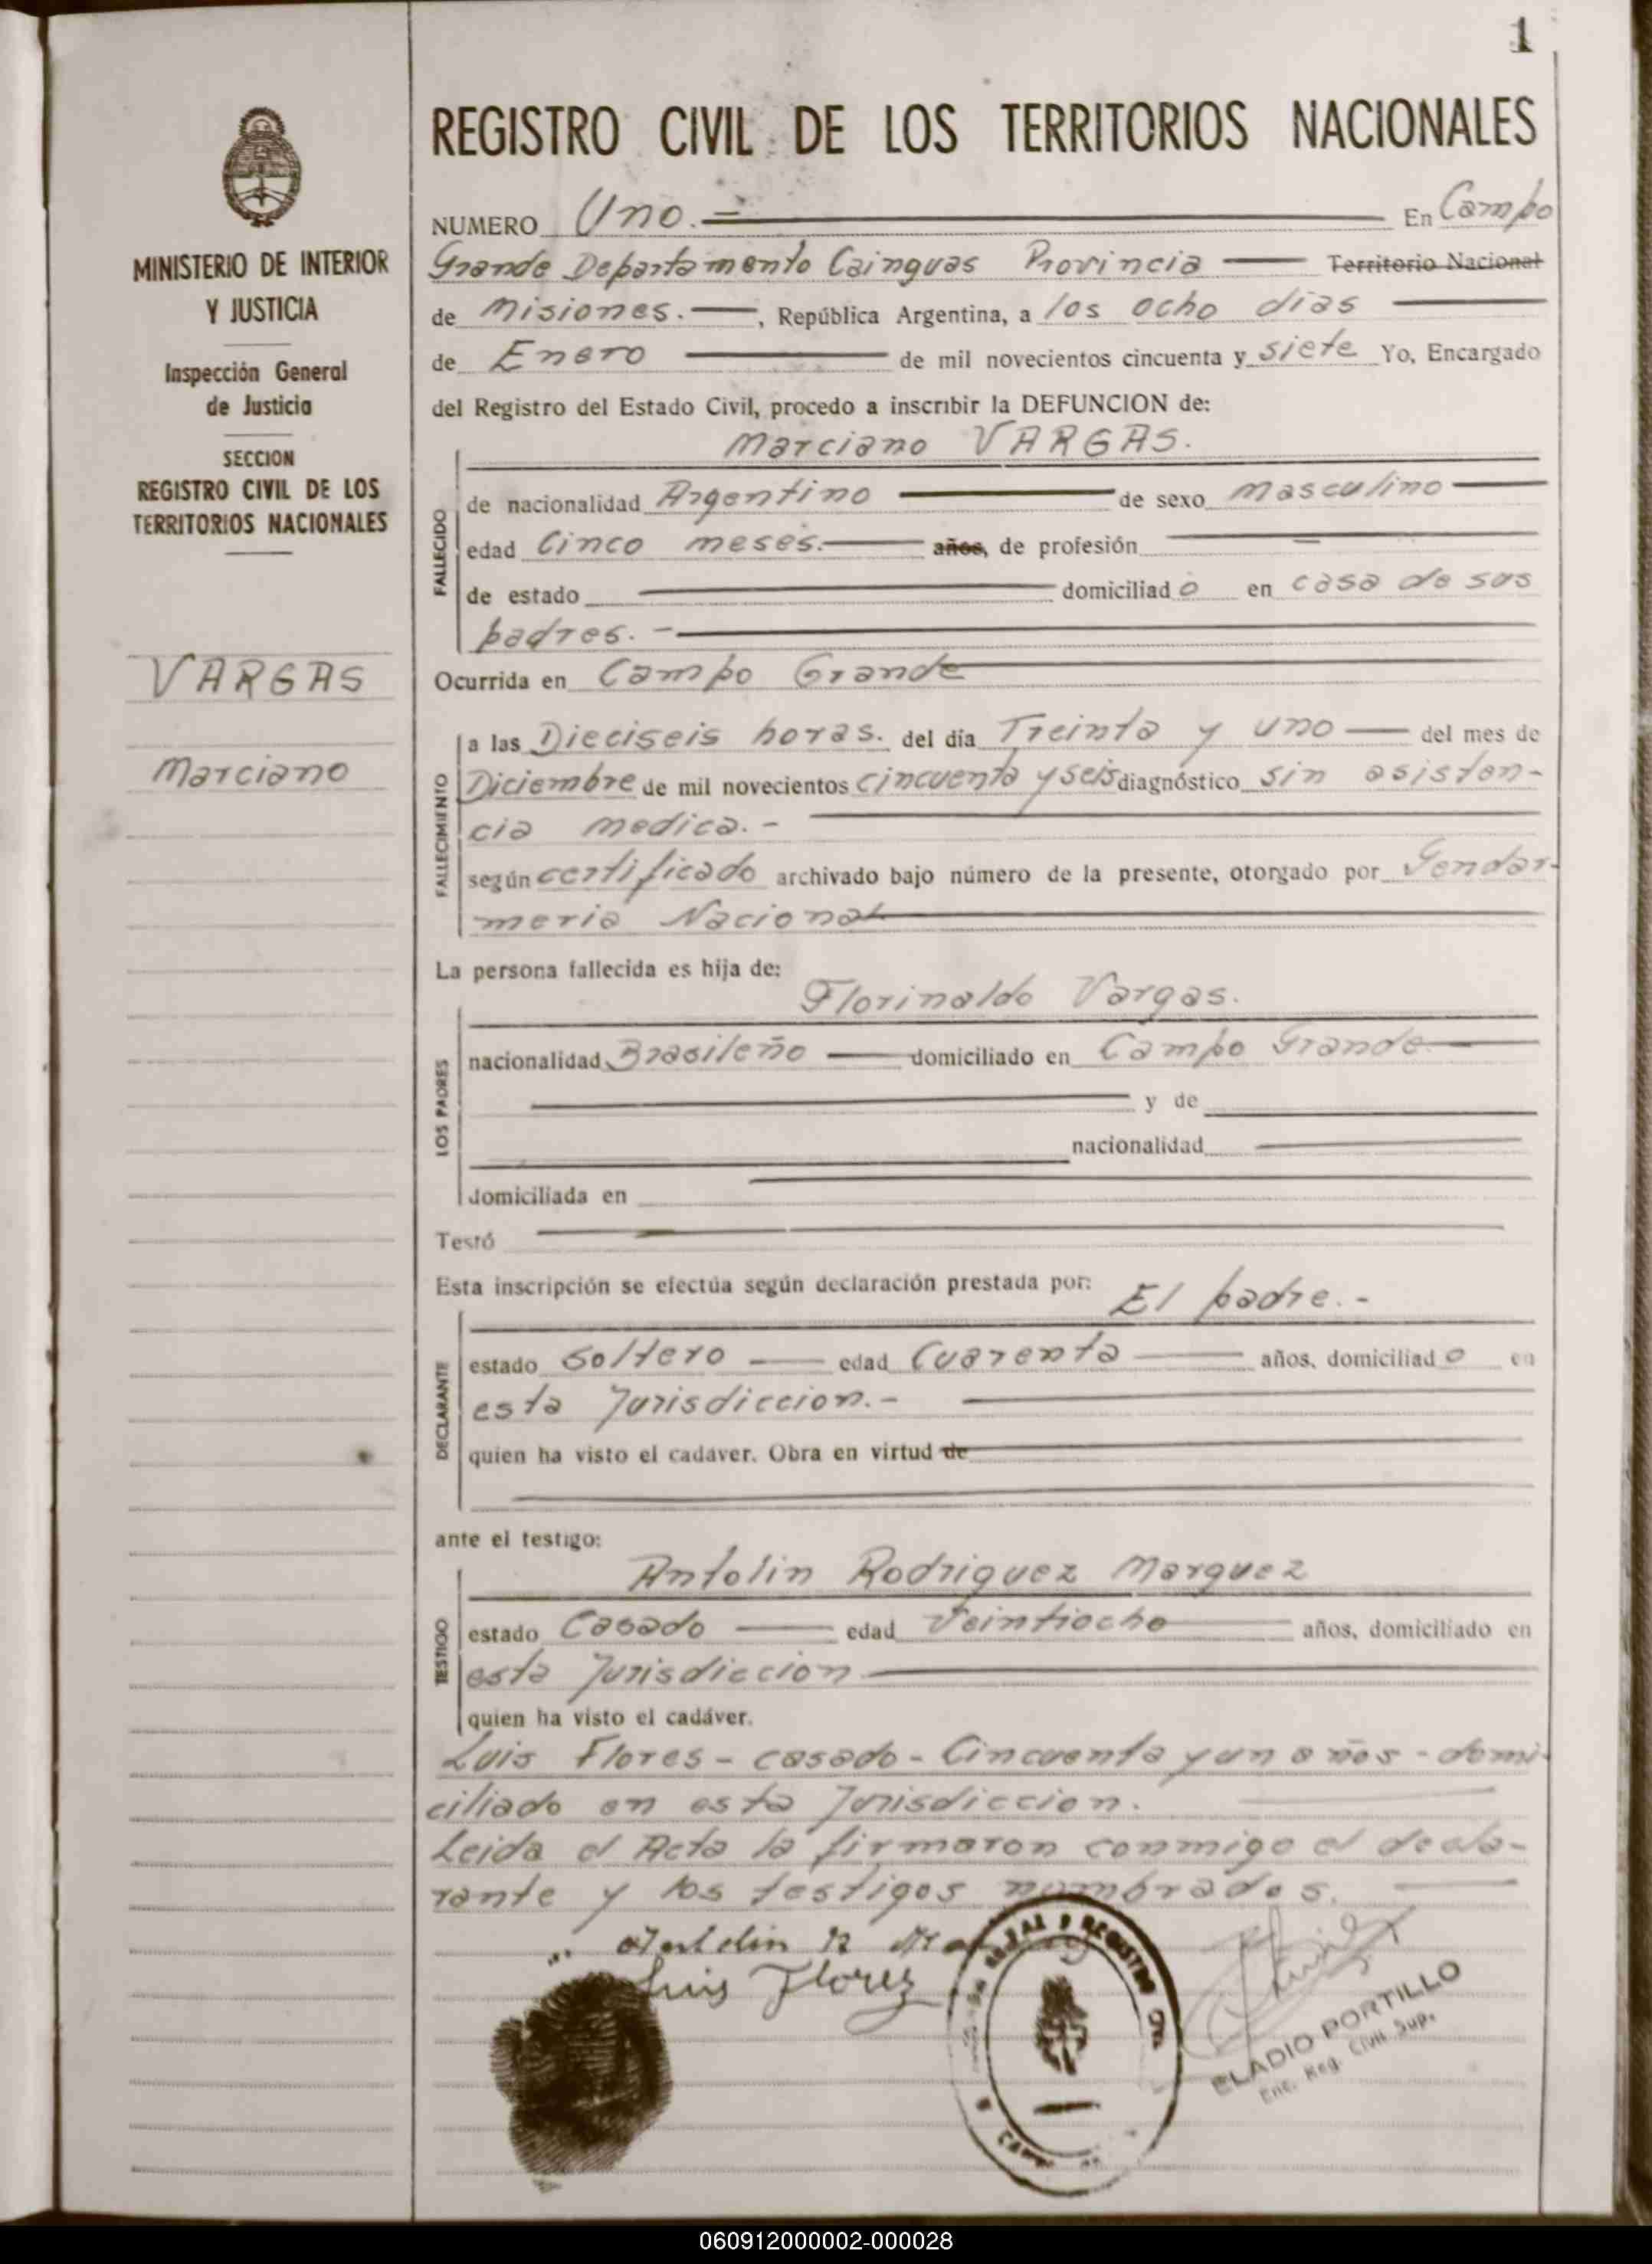 1
REGISTRO CIVIL DE LOS TERRITORIOS NACIONALES
MINISTERIO DE INTERIOR
Y JUSTICIA
Inspección General
de Justicia
SECCION
REGISTRO CIVIL DE LOS
TERRITORIOS NACIONALES
VARGAS
Marciano
NUMERO Uno.= En Campo
Grande Departamento Cainguas Provincia Territorio Nacional
de Misiones. , República Argentina, a los ocho dias
de Enero de mil novecientos cincuenta y siete Yo, Encargado
del Registro del Estado Civil, procedo a inscribir la DEFUNCION de:
Marciano VARGAS.
FALLECIDO
de nacionalidad Argentino de sexo masculino
edad Cinco meses. años, de profesión
de estado domiciliado en casa de sus
padres. -
Ocurrida en Campo Grande
FALLECIMIENTO
a las Dieciseis horas. del día Treinta y uno del mes de
Diciembre de mil novecientos cincuenta y seis diagnóstico sin asisten-
cia medica. -
según certificado archivado bajo número de la presente, otorgado por Gendar-
meria Nacional
La persona fallecida es hija de:
Florinaldo Vargas.
LOS PADRES
nacionalidad Brasileño domiciliado en Campo Grande
y de
nacionalidad
domiciliada en
Testó
Esta inscripción se efectúa según declaración prestada por: El padre. -
DECLARANTE
estado Soltero edad Cuarenta años, domiciliado en
esta Jurisdiccion. -
quien ha visto el cadaver. Obra en virtud de
ante el testigo:
Antolin Rodriguez Marquez
TESTIGO
estado Casado edad Veintiocho años, domiciliado en
esta Jurisdiccion
quien ha visto el cadáver.
Luis Flores - casado - Cincuenta y un años - domi-
ciliado en esta Jurisdiccion.
Leida el Acta la firmaron conmigo el decla-
rante y los testigos nombrados.
Luis Florez
ELADIO PORTILLO
Enc. Reg. Civil Sup.
060912000002-000028